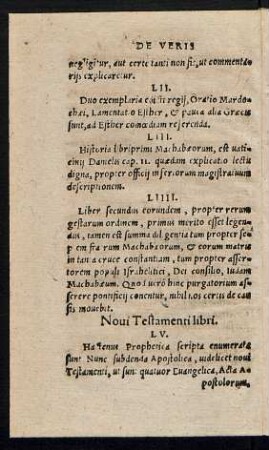 DE VERIS
negligitur, aut certe tanti non fit, ut commentariis explicaretur.
LII.
Duo exemplaria regij, Oratio Mardochæi, Lamentatio Esther, & pauca alia Græci sunt, ad Esther comœdiam referenda.
LIII.
Historia libri primi Machabæorum, est vaticinij Danielis cap. 11. quædam explicatio lectu digna, propter officij inferiorum magistratuum descriptionem.
LIIII.
Liber secundus eorundem, propter rerum gestarum ordinem, primus merito esset legendus, tamen est summa diligentia tum propter septem fratrum Machabæorum, & eorum matris in tanta cruce constantiam, tum propter assertorem populi Israhelitici, Dei consilio, Iudam Machabæum. Quo liuero hinc purgatorium asserere pontificij conentur, nihil nos certis de causis mouebit.
Noui Testamenti libri.
LV.
Hactenus Prophetica scripta enumerata sunt Nunc subdenda Apostolica, uidelicet noui Testamenti, ut sunt quatuor Euangelica, Acta Apostolorum,